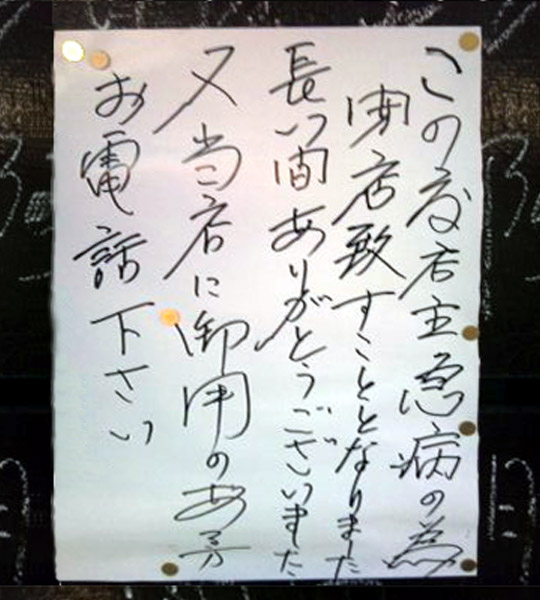 この度店主急病の為
閉店致すこととなりました
長い間ありがとうございました
又当店に御用のある方
お電話下さい